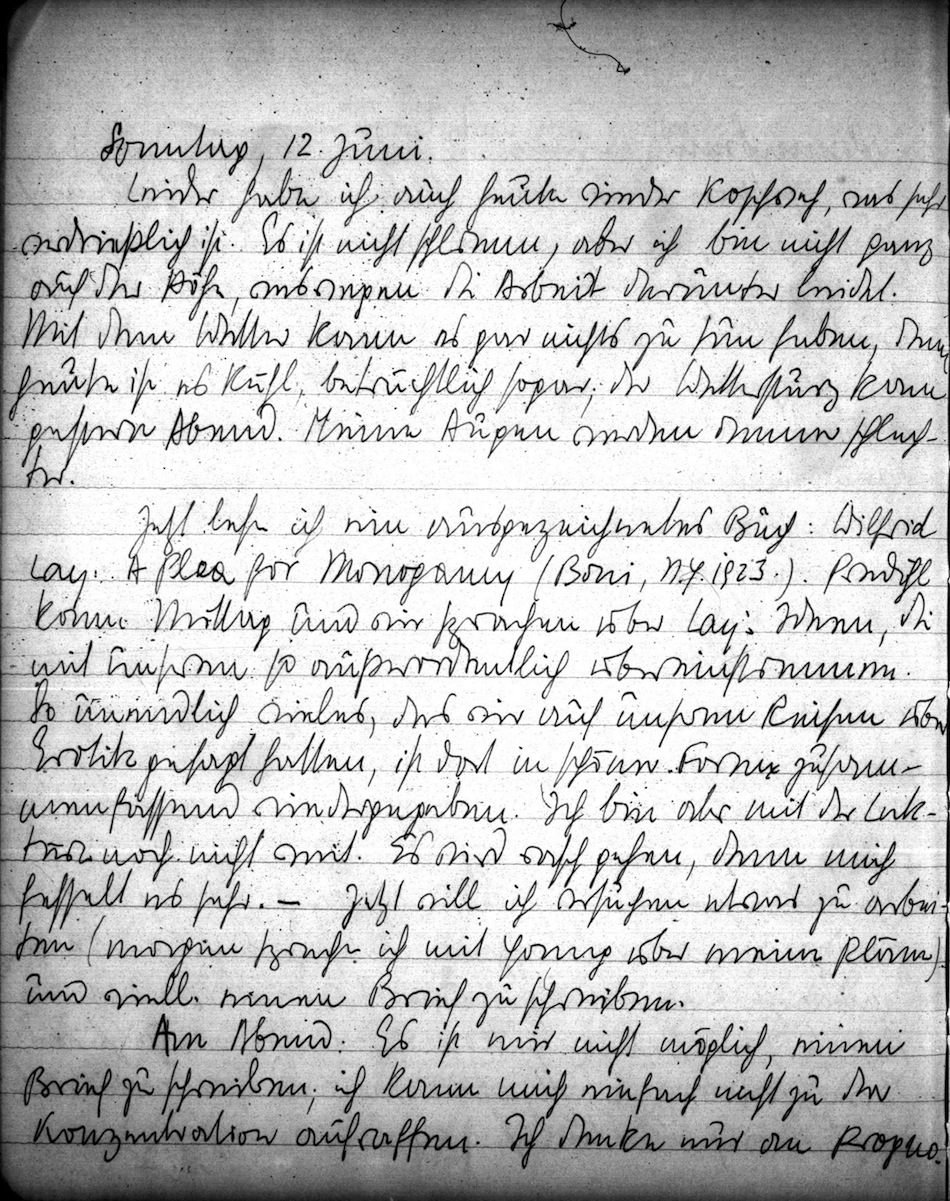 Sonntag, 12. Juni.
Leider habe ich auch heute wieder Kopfweh, was sehr
verdrießlich ist. Es ist nicht schlimm, aber ich bin nicht ganz
auf der Höhe, weswegen die Arbeit darunter leidet.
Mit dem Wetter kann es gar nichts zu tun haben, denn
heute ist es kühl, beträchtlich sogar; der Wettersturz kam
gestern Abend. Meine Augen werden immer schlech-
ter.
Jetzt lese ich ein ausgezeichnetes Buch: Wilfrid
Lay: A Plea for Monogamy (Boni, N.Y. 1923.).
kam Mittag und wir sprachen über Lay's Ideen, die
mit unseren so außerordentlich übereinstimmen.
So unendlich vieles, das wir auf unseren Reisen über
Erotik gesagt hatten, ist dort in schöner Form zusam-
menfassend wiedergegeben. Ich bin aber mit der Lek-
türe noch nicht weit. Es wird rasch gehen, denn mich
fesselt es sehr. – Jetzt will ich versuchen etwas zu arbei-
ten (morgen spreche ich mit Young über meine Pläne)
und viell. einen Brief zu schreiben.
Am Abend. Es ist mir nicht möglich, einen
Brief zu schreiben; ich kann mich einfach nicht zu der
Konzentration aufraffen. Ich denke nur an